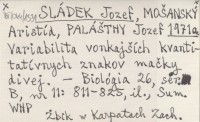 SLÁDEK Jozef, MOŠANSKÝ
Aristíd, PALÁŠTHY Jozef 1971a
Variabilita vonkajších kvanti-
tatívnych znakov mačky
divej. – Biológia 26, sér.
B, nr 11: 811-825, il., Sum.
WHP
Żbik w Karpatach Zach.